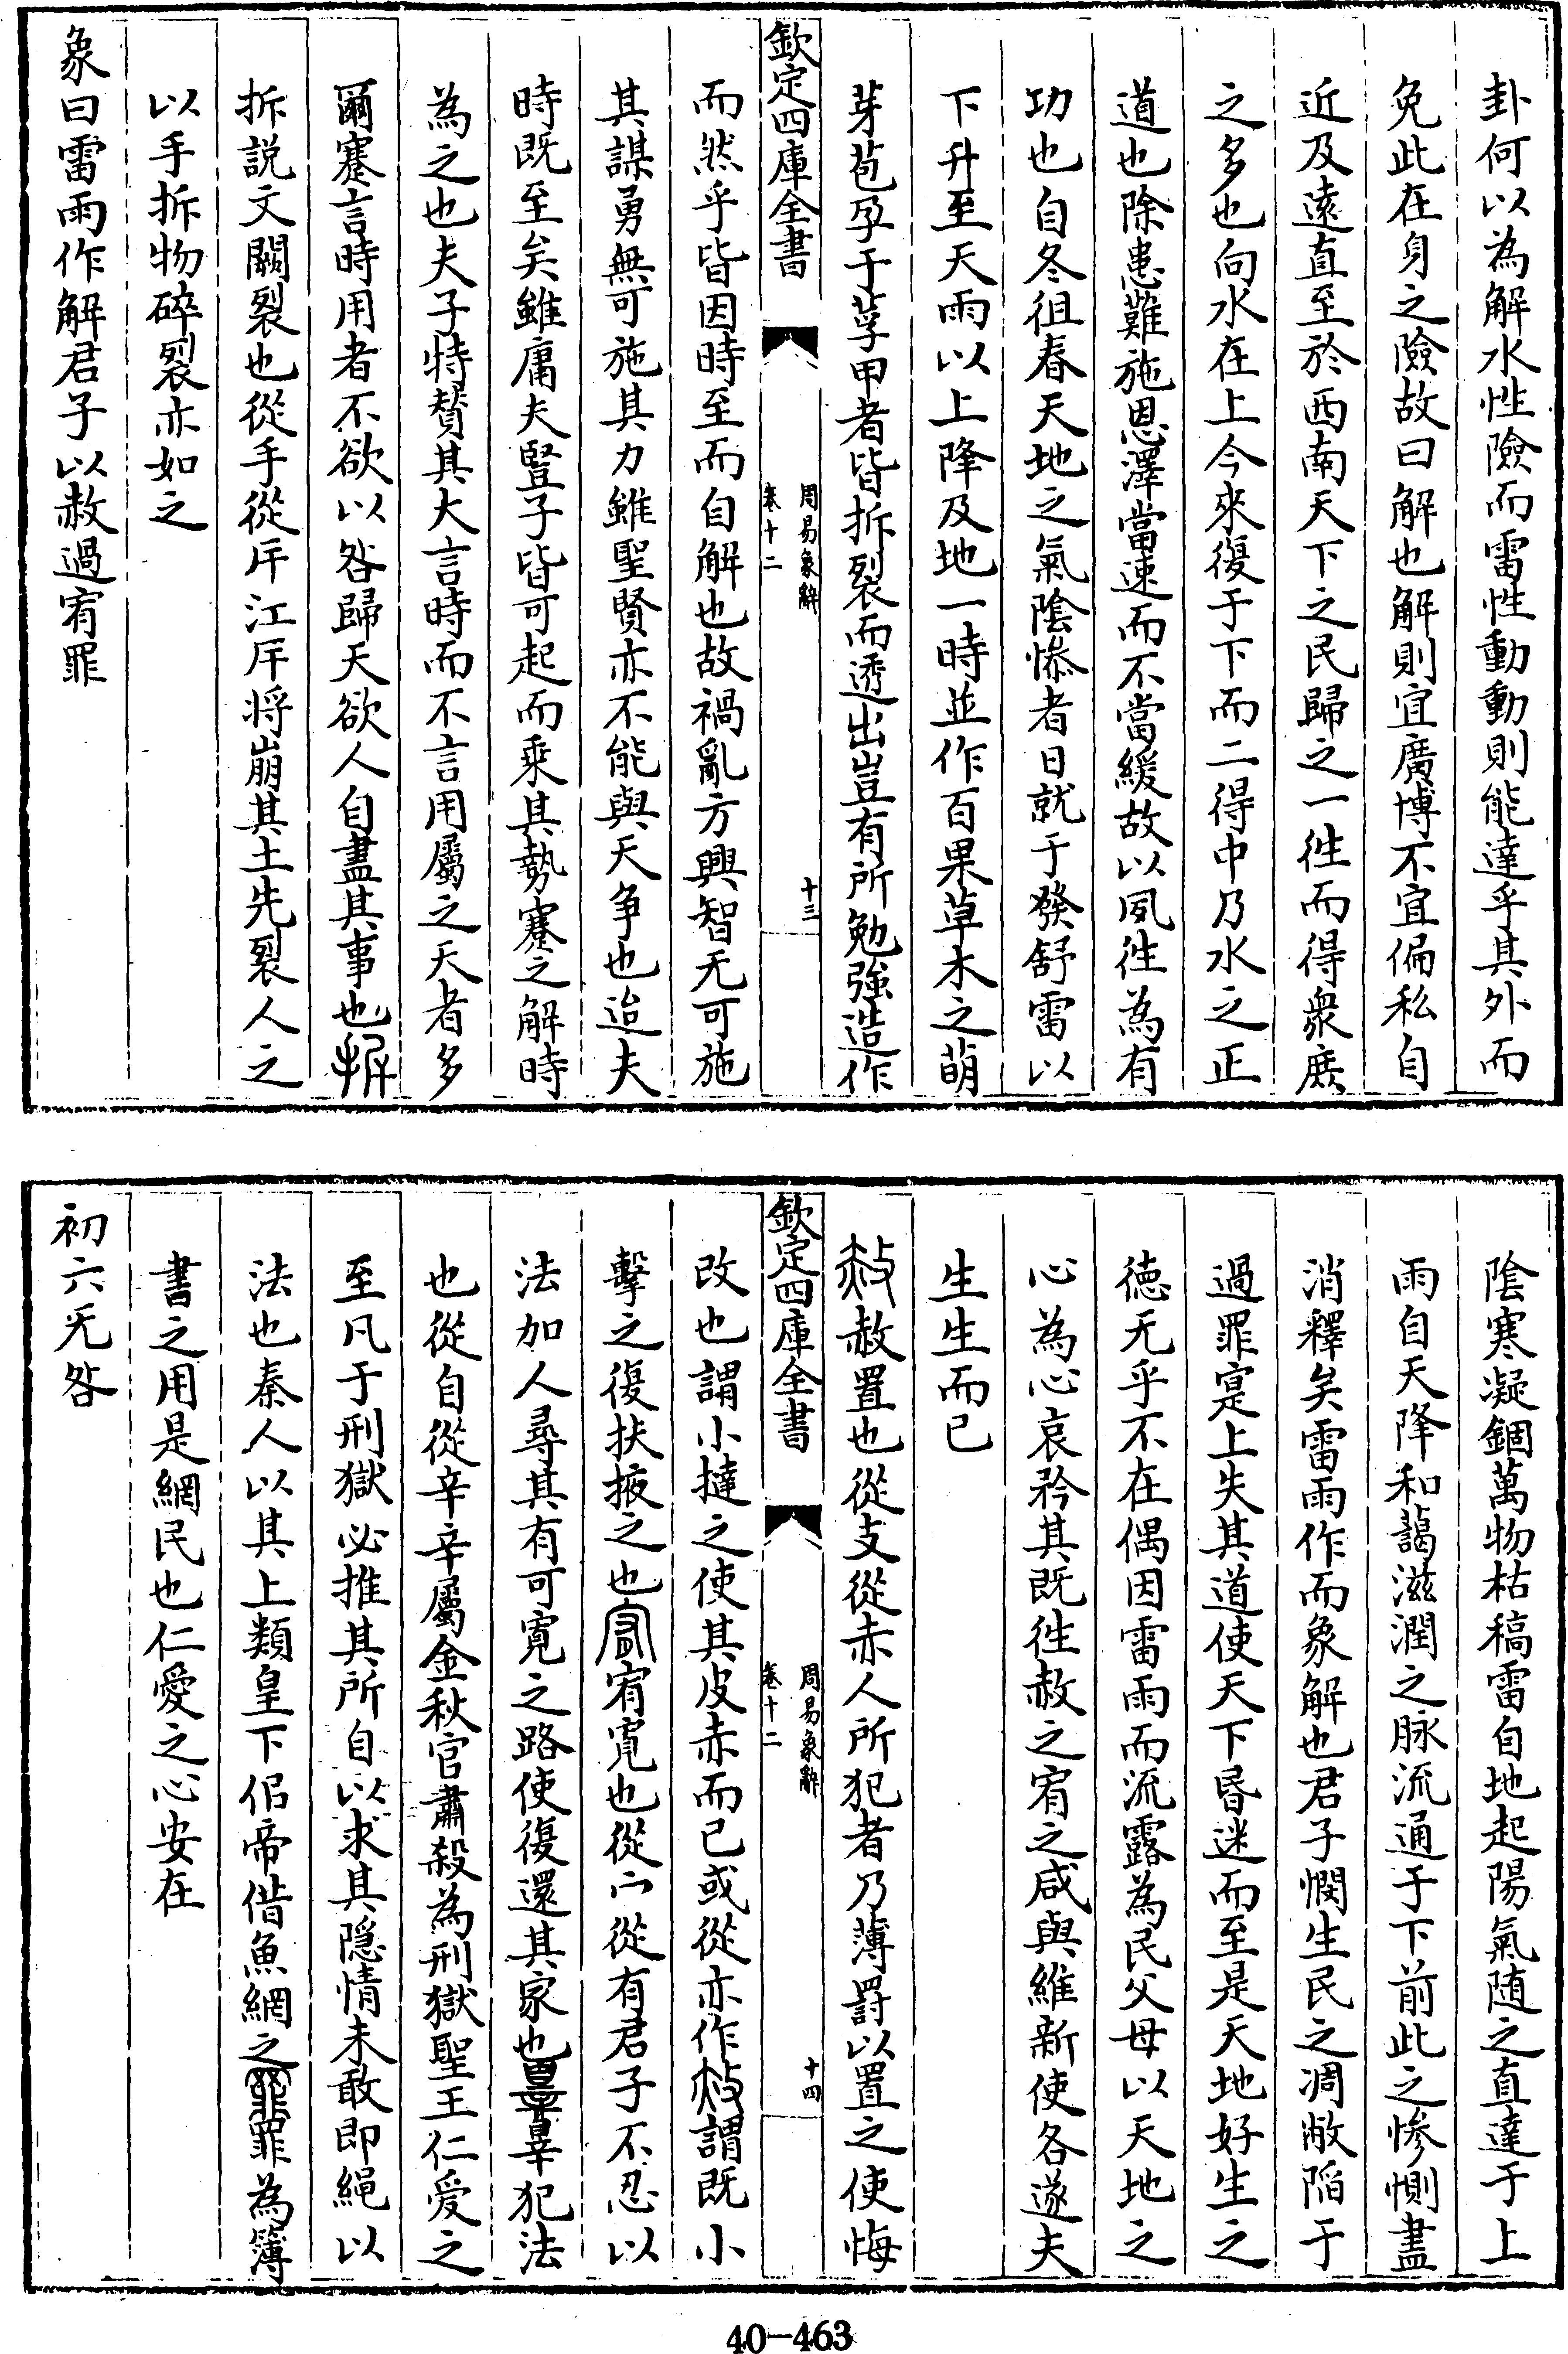 卦何以為解水性險而雷性動動則能達乎其外而
免此在身之險故曰解也解則宜廣博不宜偏私自
近及遠直至於西南天下之民歸之一徃而得衆庻
之多也向水在上今來復于下而二得中乃水之正
道也除患難施恩澤當速而不當緩故以夙徃為有
功也自冬徂春天地之氣陰慘者日就于發舒雷以
下升至天雨以上降及地一時並作百果草木之萌
芽苞孕于莩甲者皆拆裂而透出豈有所勉強造作
欽定四庫全書
周易象辭
卷十二
十三
而然乎皆因時至而自解也故禍亂方興智无可施
其謀勇無可施其力雖聖賢亦不能與天争也迨夫
時既至矣雖庸夫豎子皆可起而乘其勢蹇之解時
為之也夫子特賛其大言時而不言用屬之天者多
爾蹇言時用者不欲以咎歸天欲人自盡其事也
拆説文闢裂也從手從㡿江㡿将崩其土先裂人之
以手拆物碎裂亦如之
象曰雷雨作解君子以赦過宥罪
陰寒凝錮萬物枯稿雷自地起陽氣随之直達于上
雨自天降和藹滋潤之脉流通于下前此之慘惻盡
消釋矣雷雨作而象解也君子憫生民之凋敝陷于
過罪寔上失其道使天下昬迷而至是天地好生之
德无乎不在偶因雷雨而流露為民父母以天地之
心為心哀矜其既徃赦之宥之咸與維新使各遂夫
生生而已
赦置也從攴從赤人所犯者乃薄罰以置之使悔
欽定四庫全書
周易象辭
卷十二
十四
改也謂小撻之使其皮赤而已或從亦作謂既小
擊之復扶掖之也宥寛也從宀從有君子不忍以
法加人尋其有可寛之路使復還其家也辠犯法
也從自從辛辛屬金秋官肅殺為刑獄聖王仁爱之
至凡于刑獄必推其所自以求其隠情未敢即繩以
法也秦人以其上類皇下侣帝借魚網之罪為簿
書之用是網民也仁愛之心安在
初六无咎
40-463